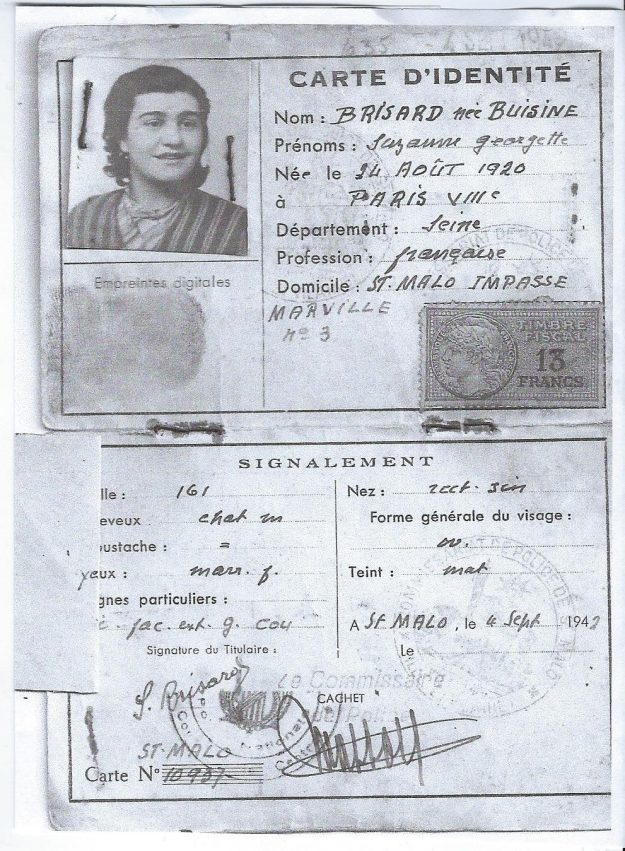 CARTE D'IDENTITÉ
Nom : BRISARD née BUISINE
Prénoms : Suzanne Georgette
Née le 24 AOÛT 1920
à PARIS VIIIe
Département : Seine
Profession : française
Domicile : ST. MALO IMPASSE
MARVILLE
n° 3
Empreintes digitales
TIMBRE
FISCAL
13
FRANCS
SIGNALEMENT
lle : 161
eveux chat m
oustache : =
yeux : marr. f.
gnes particuliers :
fac. ext. g. cou
Nez : rect.
Forme générale du visage :
ov.
Teint : mat
A ST MALO, le 4 Sept 1942
Le
Signature du Titulaire :
S. Brisard
Le Commissaire
CACHET
ST-MALO
Carte N° 10937